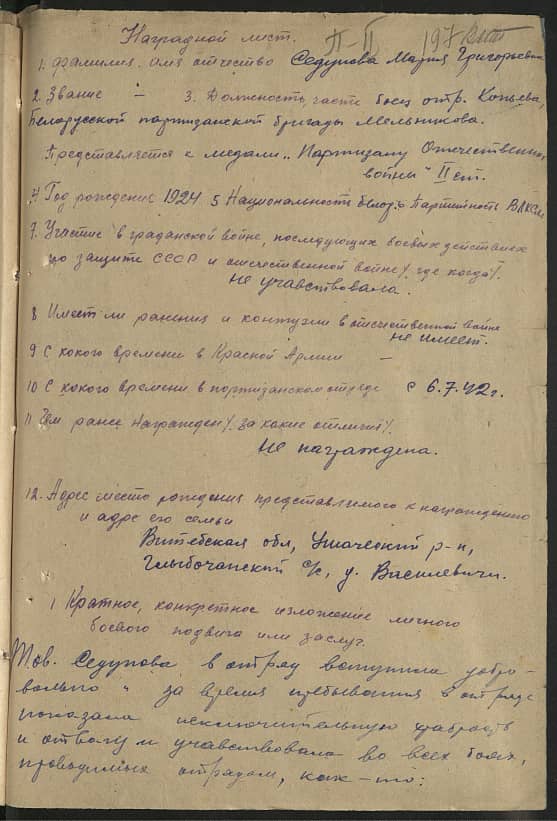 Наградной лист.
П-II
197
1. Фамилия имя отчество Седунова Мария Григорьевна
2. Звание – 3. Должность, часть боец отр. Копьева,
Белорусской партизанской бригады Мельникова.
Представляется к медали „Партизану Отечественной
войны" II ст.
4 Год рождения 1924 5 Национальность белор. 6 Партийность ВЛКСМ
7. Участие в гражданской войне, последующих боевых действиях
по защите СССР и отечественной войне /. где когда /.
не учавствовала.
8 Имеет ли ранения и контузии в отечественной войне
не имеет.
9 С какого времени в Красной Армии –
10 С какого времени в партизанском отряде с 6.7.42 г.
11 Чем ранее награжден /. за какие отличия /.
Не награждена.
12. Адрес место рождения представляемого к награждению
и адрес его семьи
Витебская обл, Ушачский р-н,
Глыбочанский с/с, д. Василевичи.
1 Краткое, конкретное изложение личного
боевого подвига или заслуг.
Тов. Седунова в отряд вступила добро-
вольно за время пребывания в отряде
показала исключительную храбрость
и отвагу и учавствовала во всех боях,
проводимых отрядом, как-то: